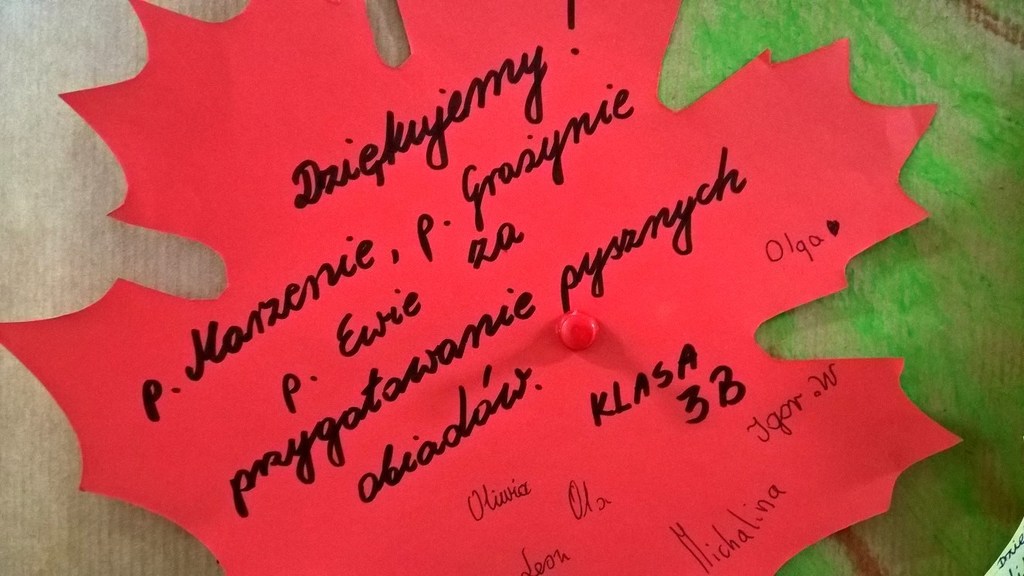 Dziękujemy!
p. Marzenie, p. Grażynie
p. Ewie za
przygotowanie pysznych
obiadów.
KLASA
3B
Olga
Igor.W
Oliwia
Ola
Michalina
Leon